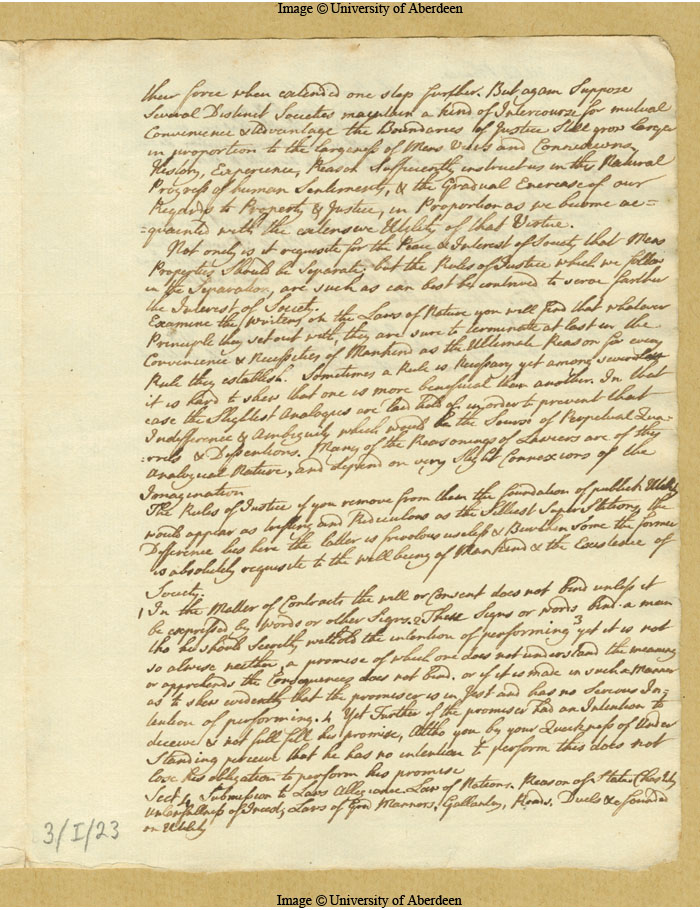 Image © University of Aberdeen
their force when extended one step further. But again Suppose
Several Distinct Societies maintain a kind of Intercourse for mutual
Convenience & Advantage the Boundaries of Justice Still grow larger
in proportion to the largeness of Mens Views and Connexions,
History, Experience, Reason Sufficiently instruct us in this Natural
Progress of human Sentiments, & the Gradual Encrease of our
Regards to Property & Justice, in Proportion as we become ac=
=quainted with the extensive Utility of that Virtue.
Not only is it requisite for the Peace & Interest of Society that Mens
Properties Should be Separate, but the Rules of Justice which we follow
in the Separation, are such as can best be contrived to serve farther
the Interest of Society.
Examine the Writers on the Laws of Nature you will find that whatever
Principle they set out with, they are sure to terminate at last in the
Convenience & Necessities of Mankind as the Ultimate Reason for every
Rule they establish. Sometimes a Rule is Necessary yet among several
it is hard to shew that one is more beneficial than another. In that
case the Slightest Analogies are laid hold of in order to prevent that
Indifference & Ambiguity which would be the Source of Perpetual Qua=
=rrels & Dissentions. Many of the Reasonings of Lawiers are of this
Analogical Nature, and depend on very Slight Connexions of the
Imagination
The Rules of Justice if you remove from them the foundation of publick Utility
would appear as trifling and Ridiculous as the Silliest Superstitions, the
Difference lies here the latter is frivolous useless & Burthen some the former
is absolutely requisite to the well being of Mankind & the Existence of
Society.
1 In the Matter of Contracts the will or Consent does not bind unless it
be expressed by Words or other Signs. 2 These Signs or words bind a man
tho he should Secretly withold the intention of performing 3 yet it is not
so alwise neither, a promise of which one does not understand the meaning
or apprehends the Consequences does not bind. or if it is made in such a Manner
as to shew evidently that the promiser is in Jest and has no Serious In=
tention of performing. 4 Yet Further if the promiser had an Intention to
deceive & not full fill his promise, Altho you by your Quickness of Under
Standing perceive that he has no intention to perform this does not
lose his obligation to perform his promise
Sect 4 Submission to Laws Allegiance Law of Nations. Reason of State Chastity
Unlawfullness of Incest, Laws of God Manners, Gallantry, Roads. Duels &c founded
on Utility
3/I/23
Image © University of Aberdeen